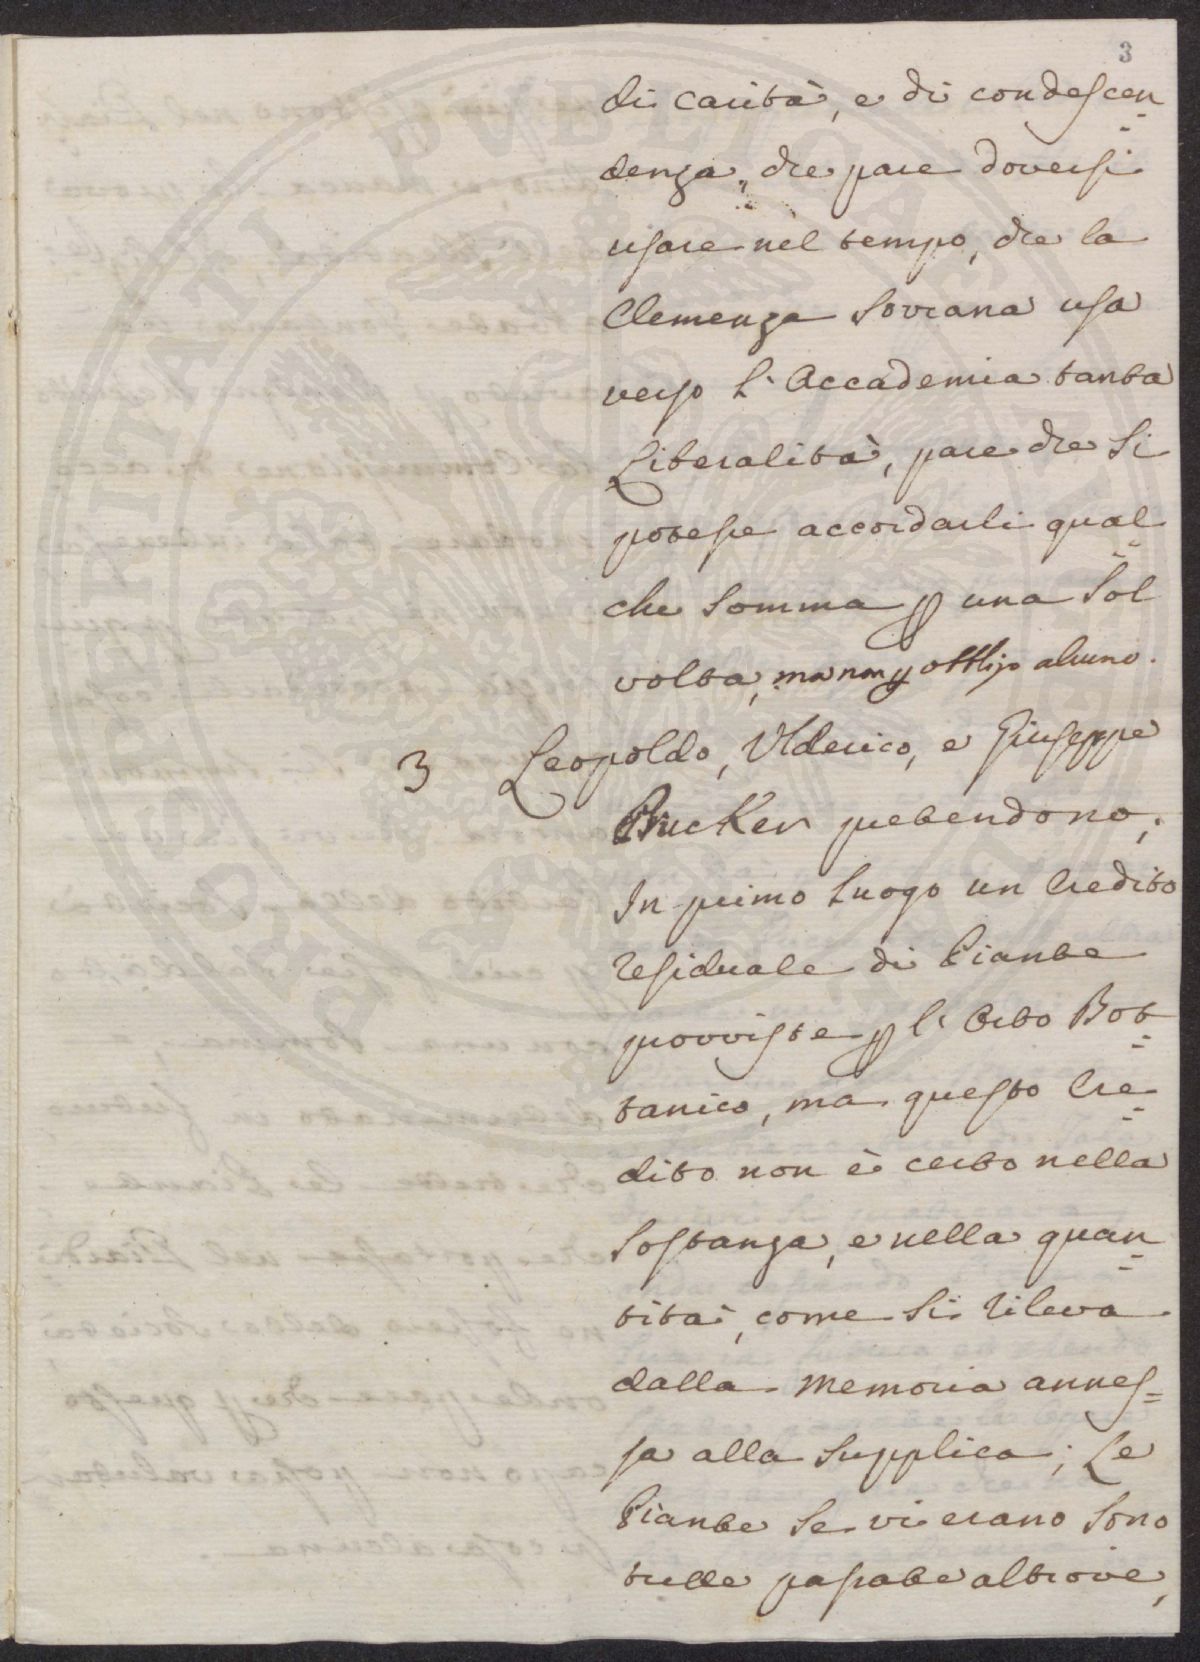 3
di carità, e di condescen=
denza, che pare doversi
usare nel tempo, che la
Clemenza Sovrana usa
verso l'Accademia tanta
Liberalità, pare che si
potesse accordarli qual=
che somma p una sol
volta, ma non p obbligo alcuno.
3 Leopoldo, Ulderico, e Giuseppe
Prucker pretendono;
In primo luogo un Credito
residuale di Piante
provviste p l'Orto Bot=
tanico, ma questo Cre=
dito non è certo nella
Sostanza, e nella quan=
tità, come si rileva
dalla Memoria annes=
sa alla Supplica; Le
Piante se vi erano sono
tutte passate altrove,